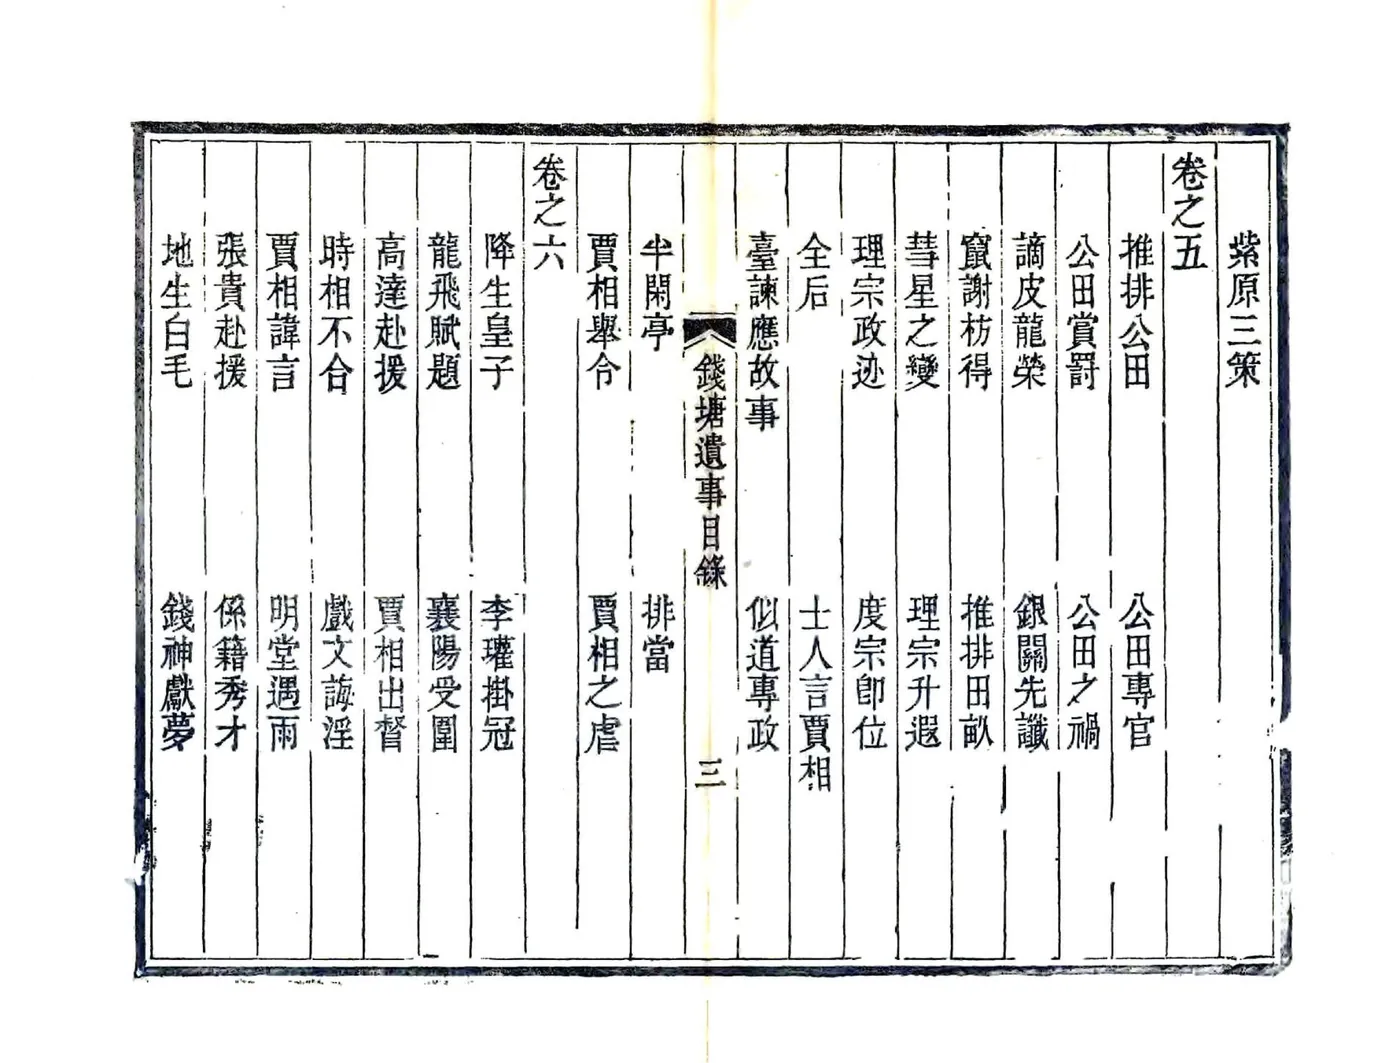 紫原三策
卷之五
推排公田　公田專官
公田賞罰　公田之禍
謫皮龍榮　銀關先讖
竄謝枋得　推排田畝
彗星之變　理宗升遐
理宗政迹　度宗卽位
全后　士人言賈相
臺諫應故事　似道專政
錢塘遺事目錄　三
半閑亭　排當
賈相舉令　賈相之虐
卷之六
降生皇子　李瓘掛冠
龍飛賦題　襄陽受圍
高達赴援　賈相出督
時相不合　戲文誨淫
賈相諱言　明堂遇雨
張貴赴援　係籍秀才
地生白毛　錢神獻夢